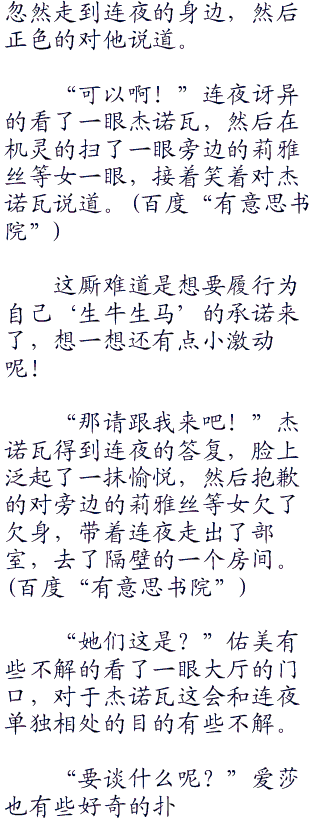 忽然走到连夜的身边，然后
正色的对他说道。
“可以啊！”连夜讶异
的看了一眼杰诺瓦，然后在
机灵的扫了一眼旁边的莉雅
丝等女一眼，接着笑着对杰
诺瓦说道。(百度“有意思书
院”)
这厮难道是想要履行为
自己‘生牛生马’的承诺来
了，想一想还有点小激动
呢！
“那请跟我来吧！”杰
诺瓦得到连夜的答复，脸上
泛起了一抹愉悦，然后抱歉
的对旁边的莉雅丝等女欠了
欠身，带着连夜走出了部
室，去了隔壁的一个房间。
(百度“有意思书院”)
“她们这是？”佑美有
些不解的看了一眼大厅的门
口，对于杰诺瓦这会和连夜
单独相处的目的有些不解。
“要谈什么呢？”爱莎
也有些好奇的扑